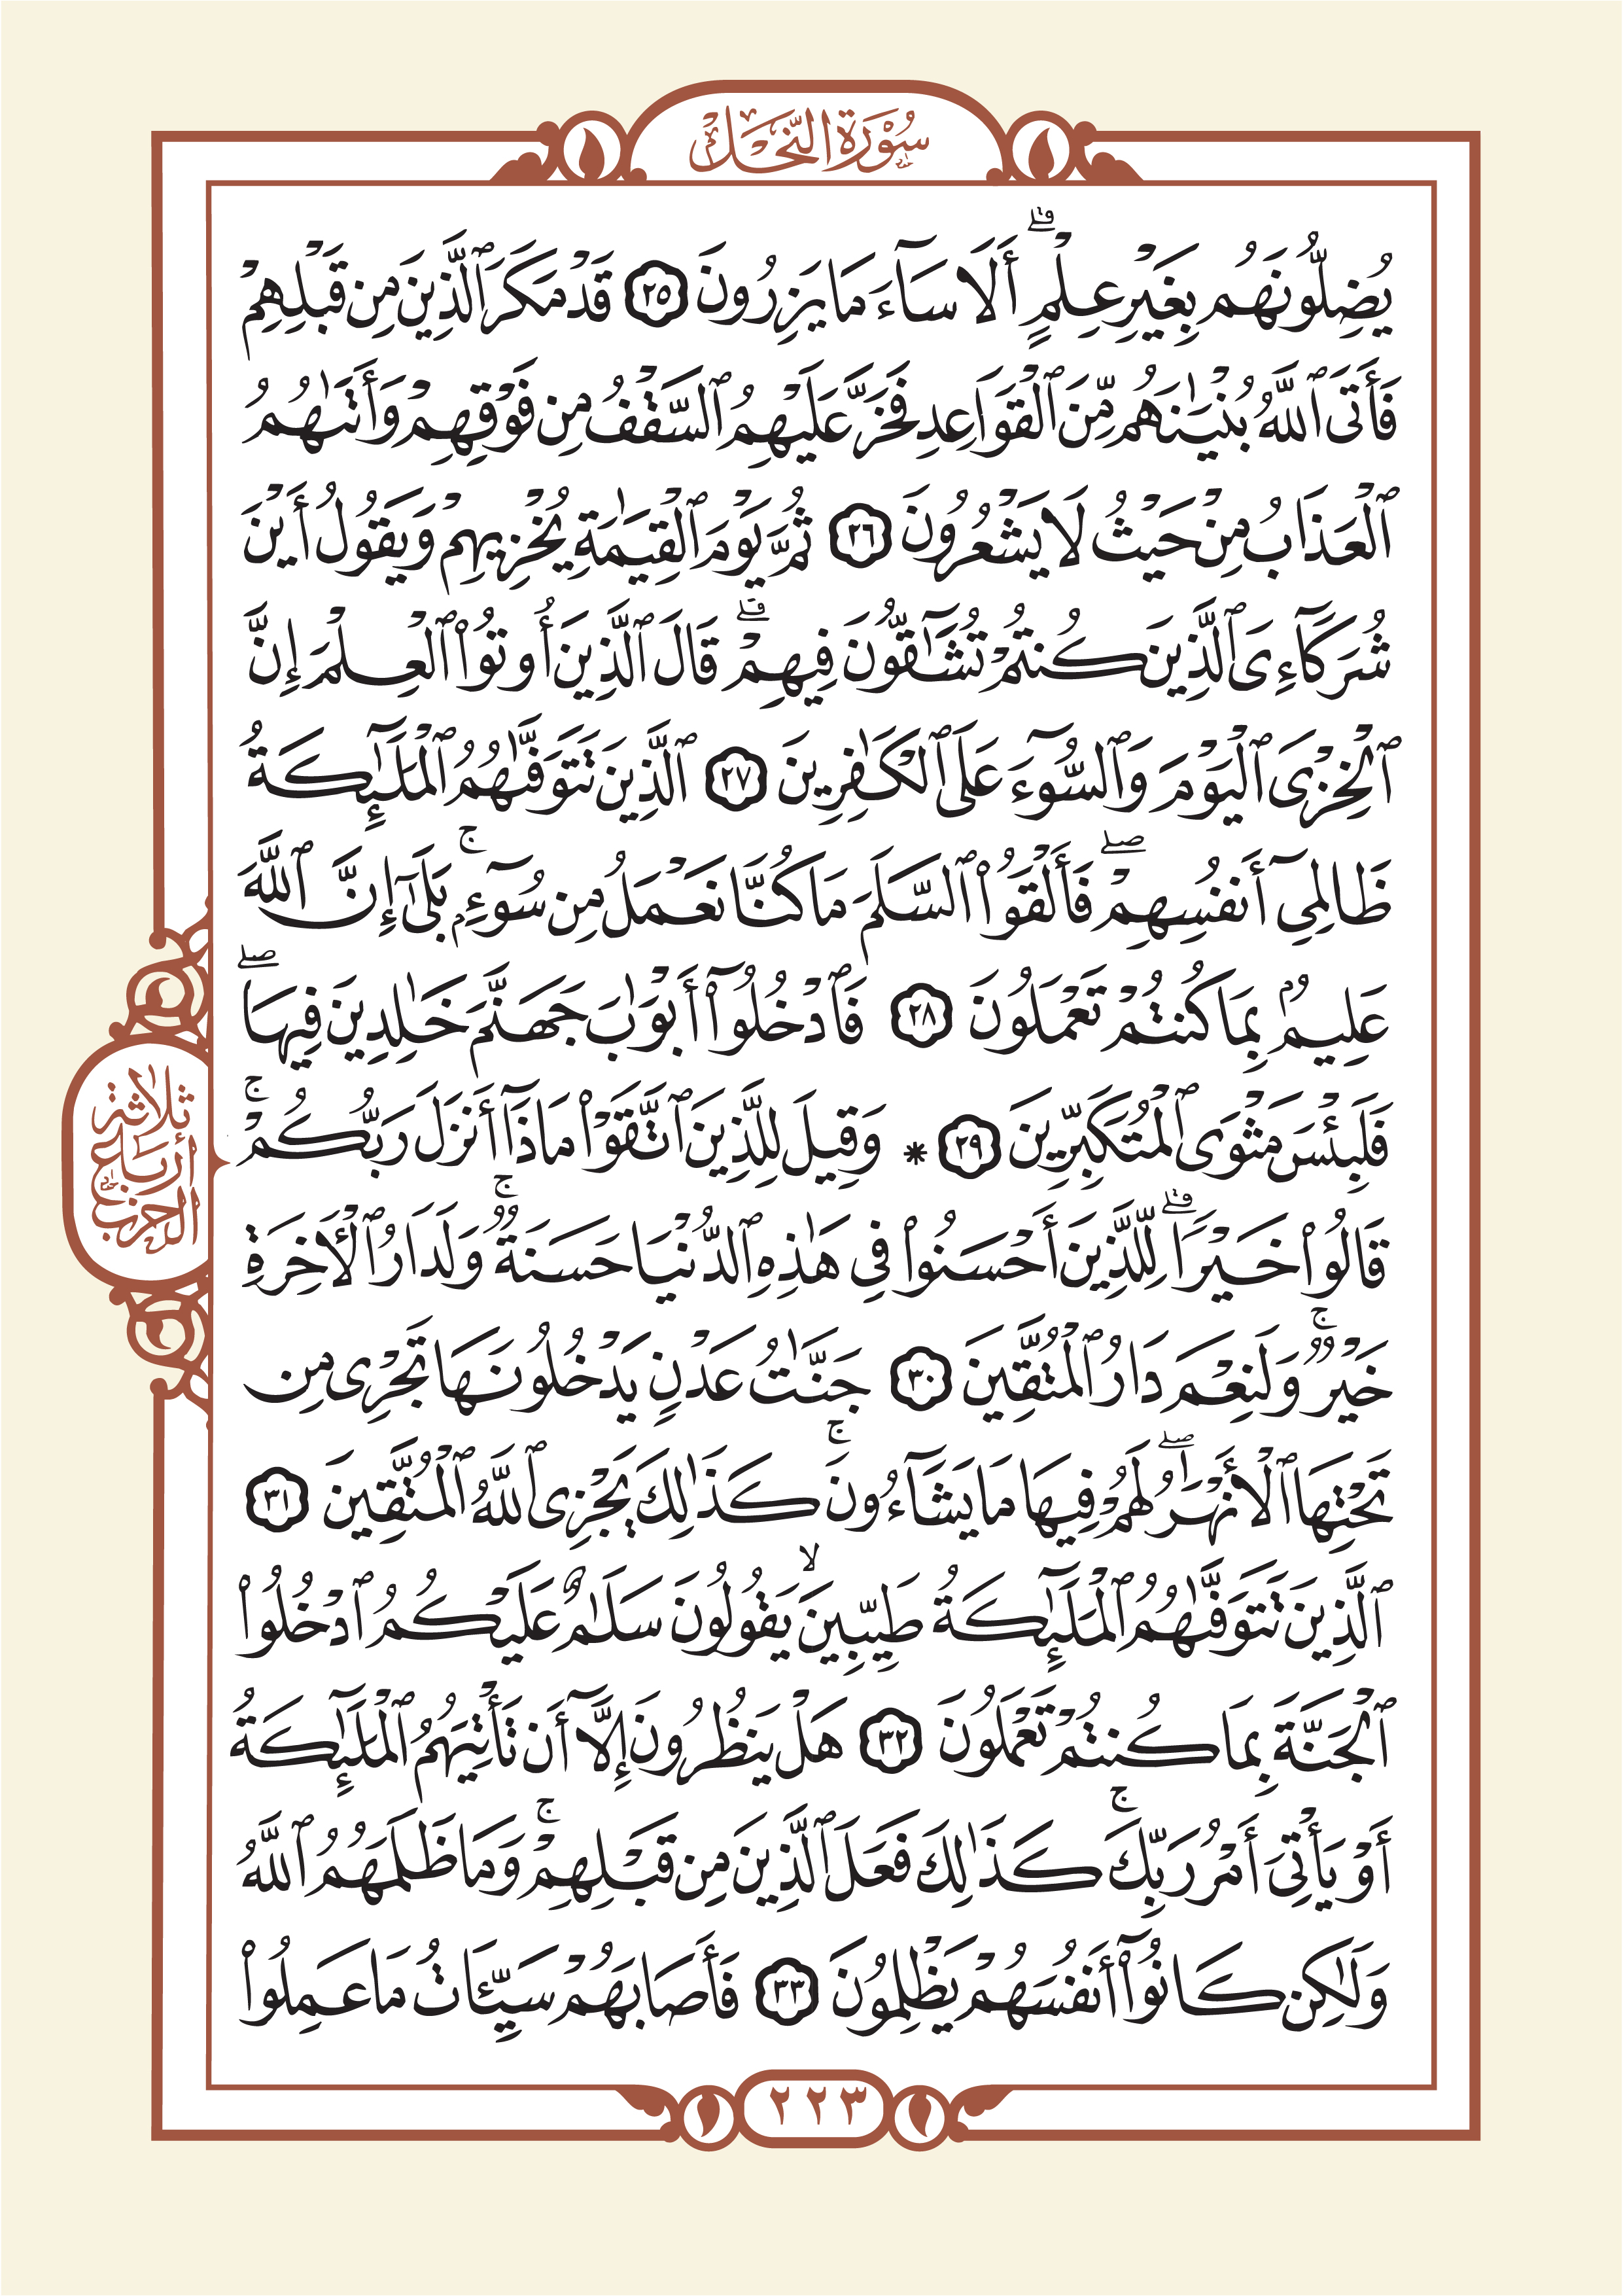 سُورَةُ النَّحْلِ
يُضِلُّونَهُم بِغَيْرِ عِلْمٍ ۗ أَلَا سَآءَ مَا يَزِرُونَ ٢٥ قَدْ مَكَرَ ٱلَّذِينَ مِن قَبْلِهِمْ
فَأَتَى ٱللَّهُ بُنْيَٰنَهُم مِّنَ ٱلْقَوَاعِدِ فَخَرَّ عَلَيْهِمُ ٱلسَّقْفُ مِن فَوْقِهِمْ وَأَتَىٰهُمُ
ٱلْعَذَابُ مِنْ حَيْثُ لَا يَشْعُرُونَ ٢٦ ثُمَّ يَوْمَ ٱلْقِيَٰمَةِ يُخْزِيهِمْ وَيَقُولُ أَيْنَ
شُرَكَآءِىَ ٱلَّذِينَ كُنتُمْ تُشَٰٓقُّونَ فِيهِمْ ۚ قَالَ ٱلَّذِينَ أُوتُوا۟ ٱلْعِلْمَ إِنَّ
ٱلْخِزْىَ ٱلْيَوْمَ وَٱلسُّوٓءَ عَلَى ٱلْكَٰفِرِينَ ٢٧ ٱلَّذِينَ تَتَوَفَّىٰهُمُ ٱلْمَلَٰٓئِكَةُ
ظَالِمِىٓ أَنفُسِهِمْ ۖ فَأَلْقَوُا۟ ٱلسَّلَمَ مَا كُنَّا نَعْمَلُ مِن سُوٓءٍۭ ۚ بَلَىٰٓ إِنَّ ٱللَّهَ
عَلِيمٌۢ بِمَا كُنتُمْ تَعْمَلُونَ ٢٨ فَٱدْخُلُوٓا۟ أَبْوَٰبَ جَهَنَّمَ خَٰلِدِينَ فِيهَا ۖ
فَلَبِئْسَ مَثْوَى ٱلْمُتَكَبِّرِينَ ٢٩ * وَقِيلَ لِلَّذِينَ ٱتَّقَوْا۟ مَاذَآ أَنزَلَ رَبُّكُمْ ۚ
قَالُوا۟ خَيْرًا ۗ لِّلَّذِينَ أَحْسَنُوا۟ فِى هَٰذِهِ ٱلدُّنْيَا حَسَنَةٌ ۚ وَلَدَارُ ٱلْـَٔاخِرَةِ
خَيْرٌ ۚ وَلَنِعْمَ دَارُ ٱلْمُتَّقِينَ ٣٠ جَنَّٰتُ عَدْنٍ يَدْخُلُونَهَا تَجْرِى مِن
تَحْتِهَا ٱلْأَنْهَٰرُ ۖ لَهُمْ فِيهَا مَا يَشَآءُونَ ۚ كَذَٰلِكَ يَجْزِى ٱللَّهُ ٱلْمُتَّقِينَ ٣١
ٱلَّذِينَ تَتَوَفَّىٰهُمُ ٱلْمَلَٰٓئِكَةُ طَيِّبِينَ ۙ يَقُولُونَ سَلَٰمٌ عَلَيْكُمُ ٱدْخُلُوا۟
ٱلْجَنَّةَ بِمَا كُنتُمْ تَعْمَلُونَ ٣٢ هَلْ يَنظُرُونَ إِلَّآ أَن تَأْتِيَهُمُ ٱلْمَلَٰٓئِكَةُ
أَوْ يَأْتِىَ أَمْرُ رَبِّكَ ۚ كَذَٰلِكَ فَعَلَ ٱلَّذِينَ مِن قَبْلِهِمْ ۚ وَمَا ظَلَمَهُمُ ٱللَّهُ
وَلَٰكِن كَانُوٓا۟ أَنفُسَهُمْ يَظْلِمُونَ ٣٣ فَأَصَابَهُمْ سَيِّـَٔاتُ مَا عَمِلُوا۟
ثلاثة
أرباع
الحزب
٢٢٣